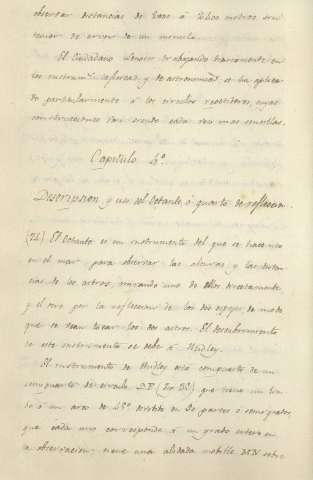 observar distancias de 2000 á 2400 metros sin
temor de error de un
El Ciudadano Lenoir trabajando diariamente en
los instrum.s y de astronomia, se ha aplica-
do particularmente á los circulos repetidores, cuyas
construcciones van siendo cada vez mas sencillas.
Capitulo 4.º
Descripcion y uso del Octante ó quarto de reflexion.
(21) El Octante es un instrumento del que se hace uso
en el mar para observar las alturas y las distan-
cias de los astros, mirando uno de ellos directamente,
y el otro por la reflexion de los dos espejos, de modo
que se vean tocar los dos astros. El descubrimiento
de este instrumento se debe á Hadley.
El instrumento de Hadley está compuesto de un
cuarto de circulo que tiene un
ó un arco de 45.º dividido en 90 partes ó semigrados,
que cada uno corresponde á un grado entero en
la observacion: tiene una alidada mobible MN sobre